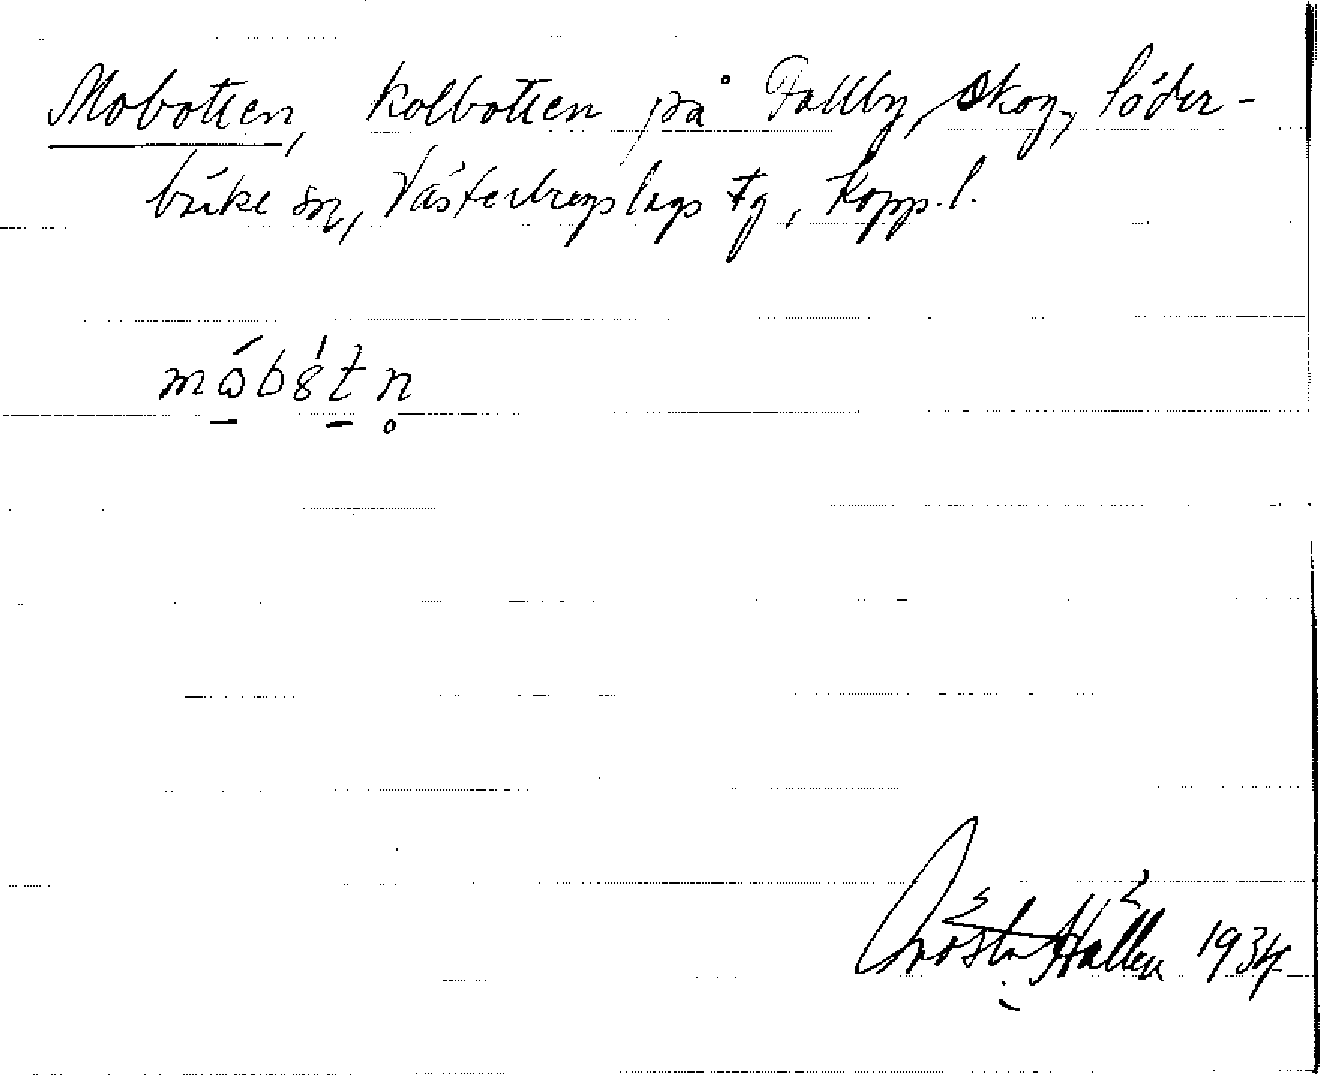 Mobotten, kolbotten på Fallby skog, Söder-
bärke sn, Västerbergslags fg, Kopp. l.
mobotn
Gösta Hallén 1934